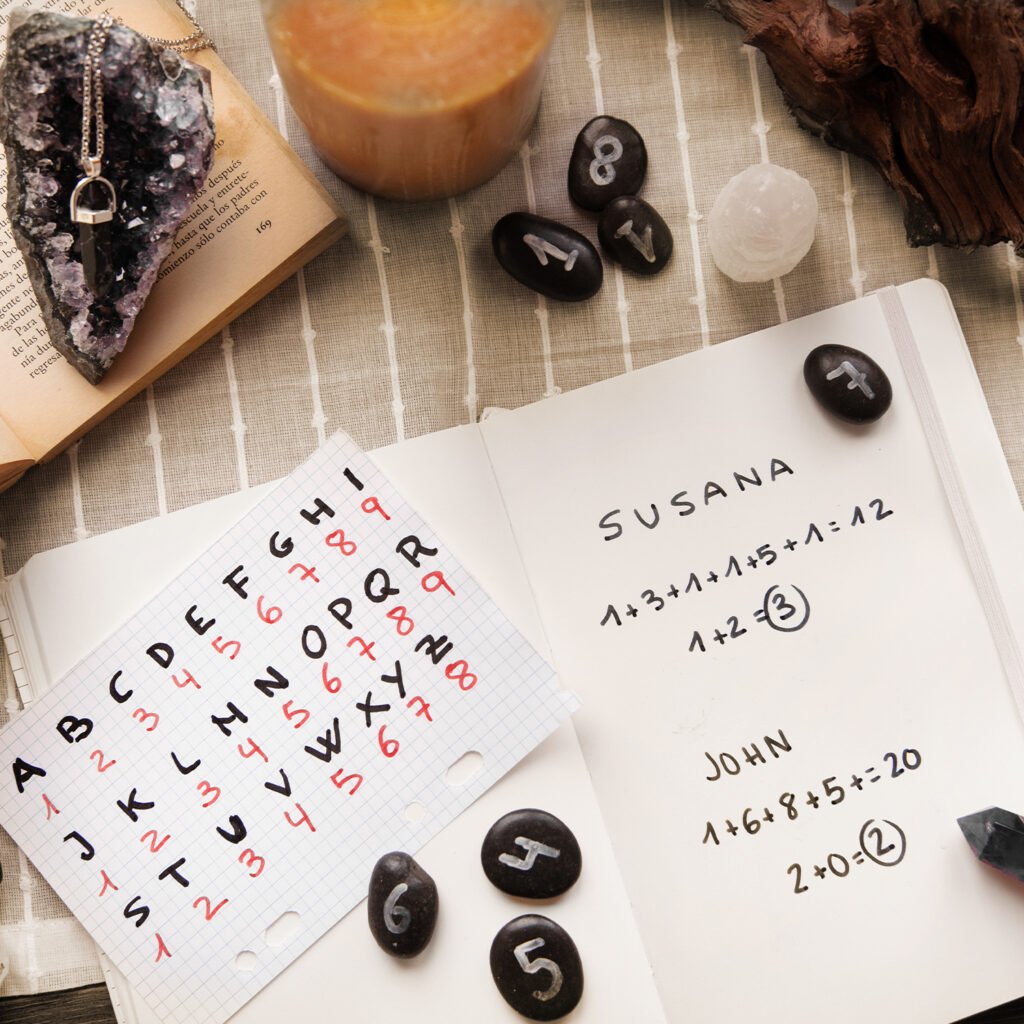 después
escuela y entrete-
hasta que los padres
sólo contaba con
169
Para
de las
8
1
7
A B C D E F G H I
1 2 3 4 5 6 7 8 9
J K L M N O P Q R
1 2 3 4 5 6 7 8 9
S T U V W X Y Z
1 2 3 4 5 6 7 8
SUSANA
1+3+1+1+5+1=12
1+2=3
JOHN
1+6+8+5+=20
2+0=2
4
6
5